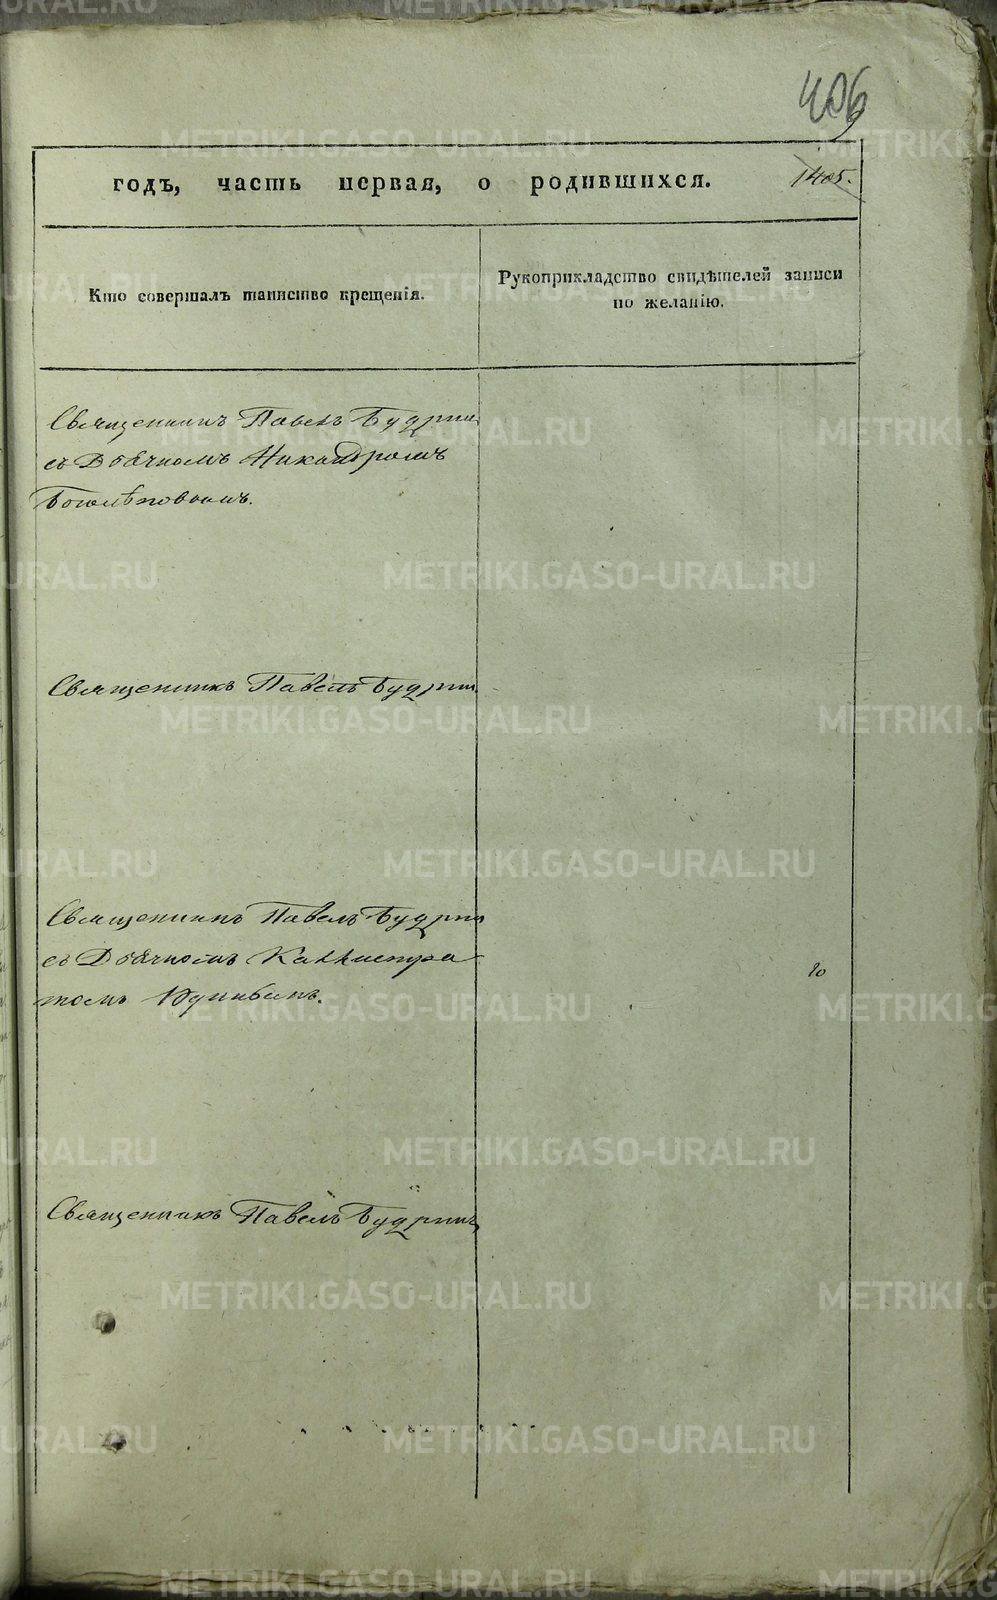 406
годъ, часть первая, о родившихся.
1405.
Кто совершалъ таинство крещенія.
Рукоприкладство свидѣтелей записи
по желанію.
Священникъ Павелъ Будрин
съ Дьячкомъ Никандромъ
Боголѣповымъ.
Священникъ Павелъ Будрин
Священникъ Павелъ Будрин
съ Дьячкомъ Каллистра
томъ
Священникъ Павелъ Будринъ
METRIKI.GASO-URAL.RU